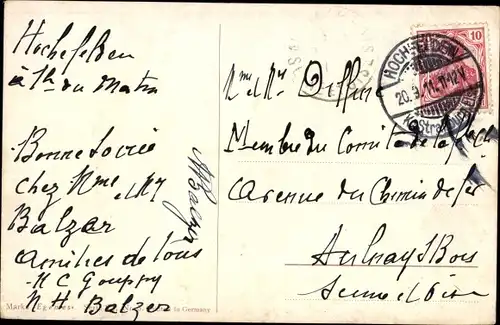 Hochefelden
à 1h du Matin
Bonne soirée
chez Mme et Mr
Balzer
Amitiés de tous
H C
N H Balzer
in Germany
Balzer
HOCHFELDEN
20.9.11. 11-12V
10
Mme et Mr
Membre du Comité de la
Avenue du Chemin de fer
Aulnay s Bois
Seine et Oise